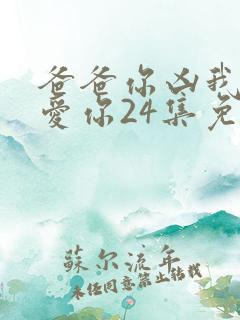 爸爸你凶我
爱你24集免
蘇尔流年
未经同意禁止转载